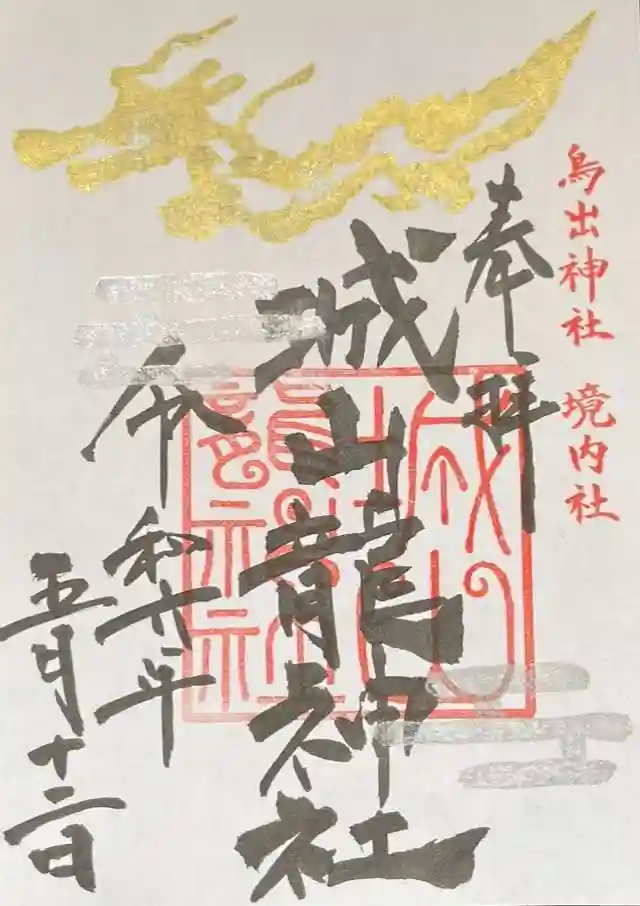 鳥出神社 境内社
奉拝
城山龍神社
令和六年
五月十二日
城山
龍神社